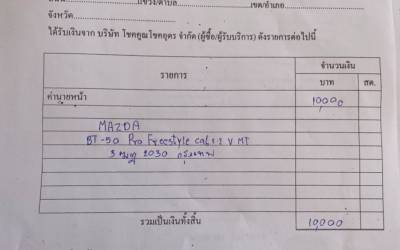 แขวง/ตำบล เขต/อำเภอ
จังหวัด
ได้รับเงินจาก บริษัท โชคคูณโชคอุดร จำกัด (ผู้ซื้อ/ผู้รับบริการ) ดังรายการต่อไปนี้
รายการ จำนวนเงิน
บาท สต.
ค่านายหน้า 10,000
MAZDA
BT-50 Pro Freestyle cab 2.2 V MT
2030 กรุงเทพ
รวมเป็นเงินทั้งสิ้น 10,000